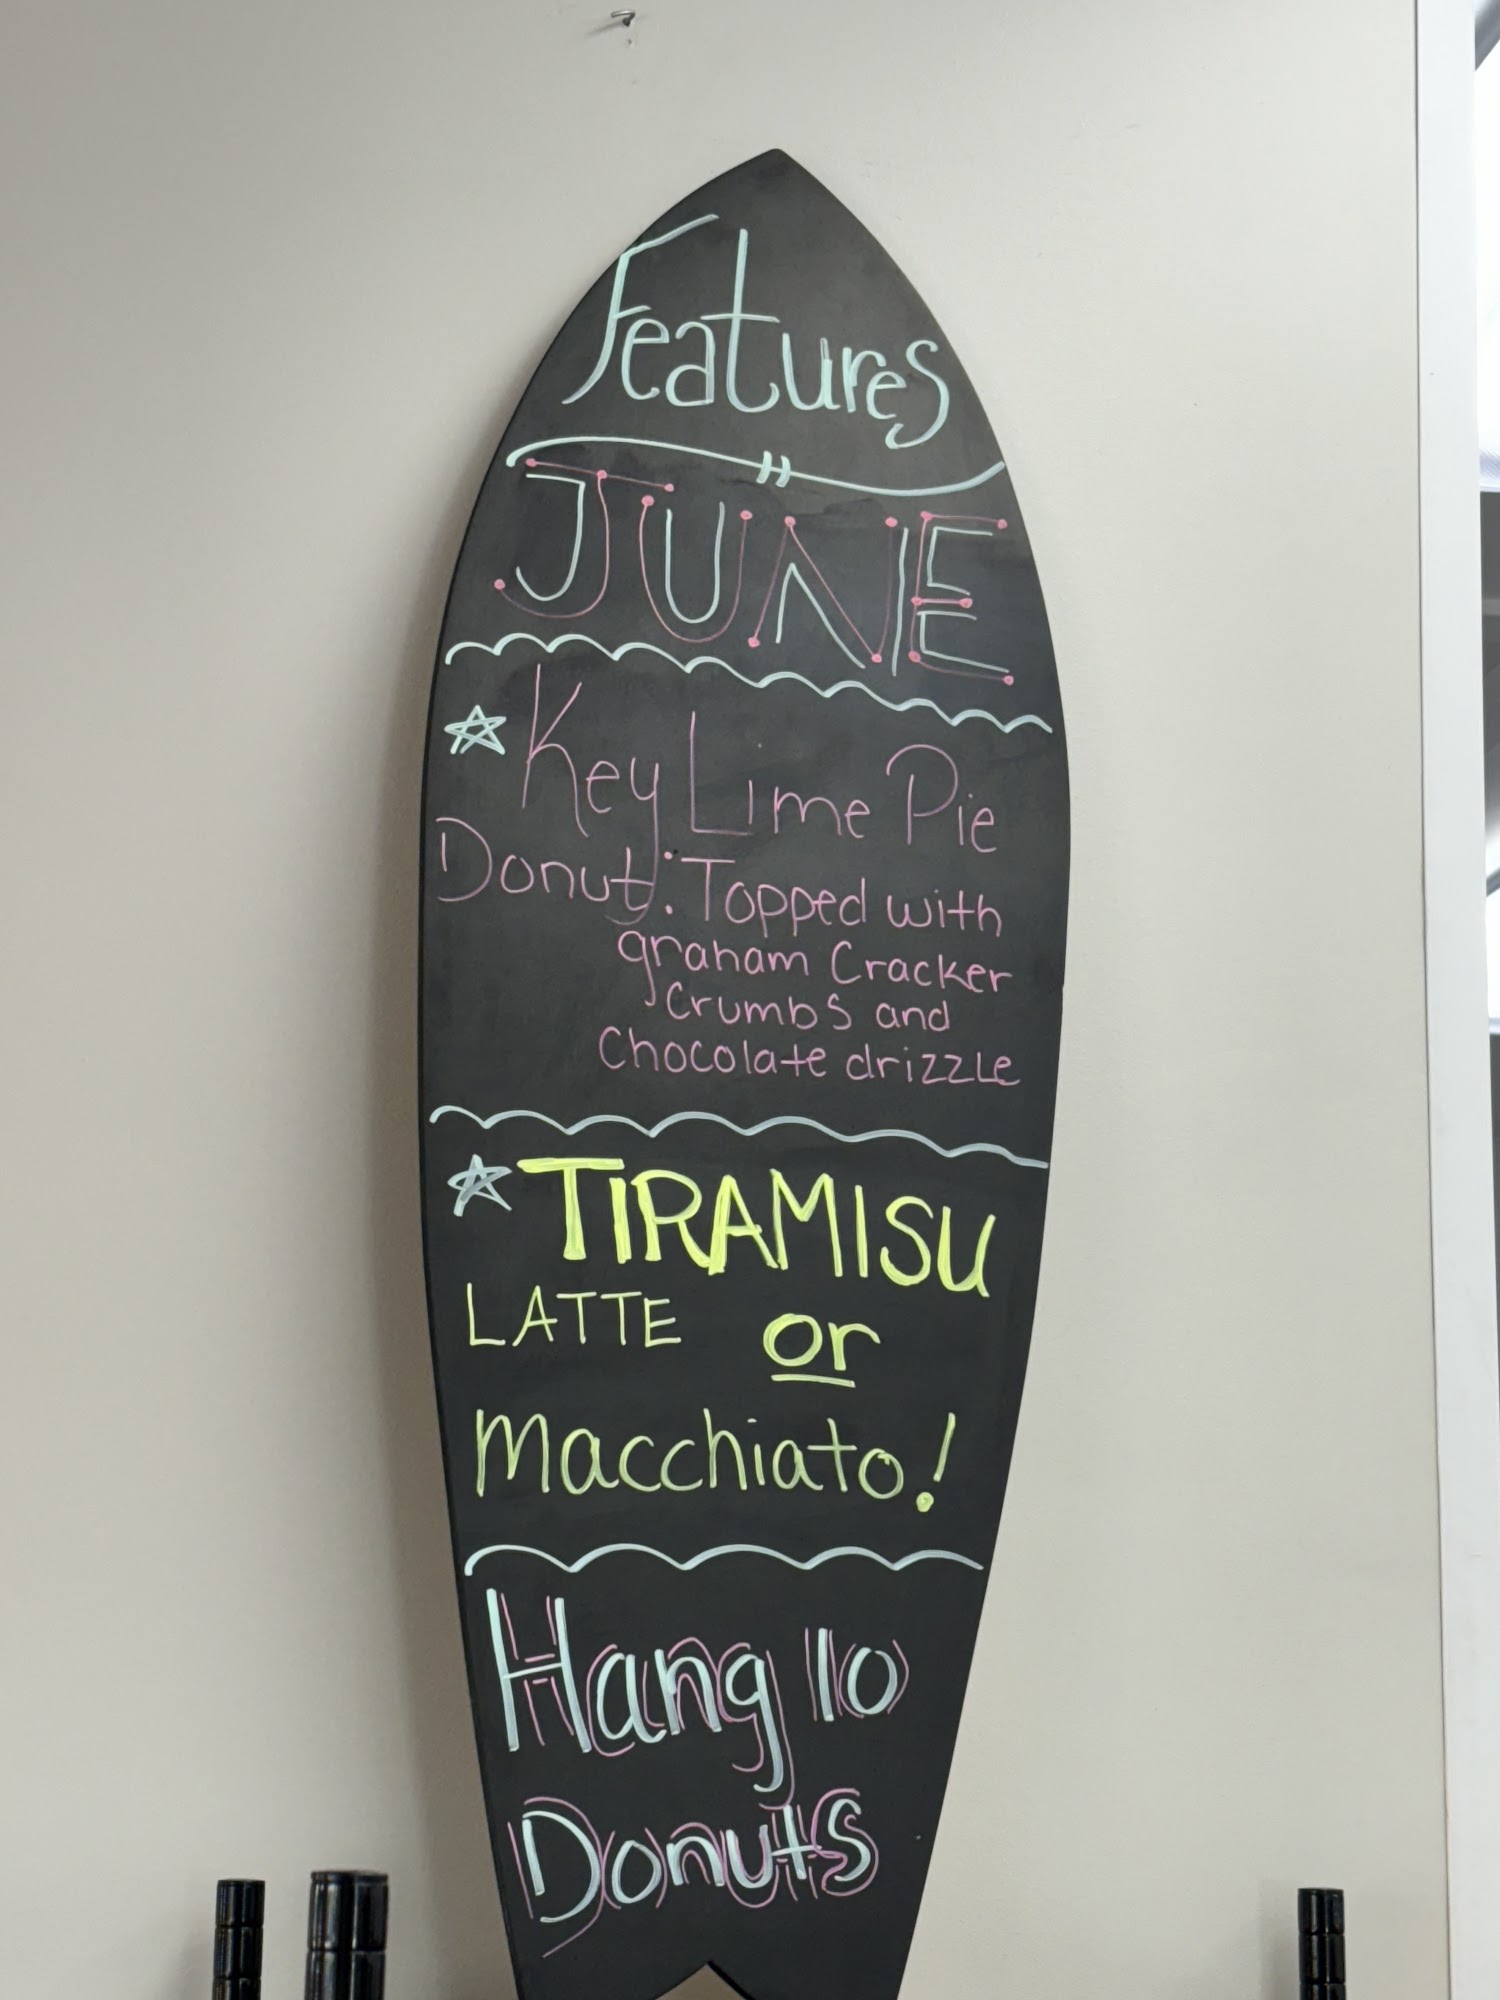 Features
JUNE
Key Lime Pie
Donut: Topped with
graham Cracker
Crumbs and
Chocolate drizzle
TIRAMISU
LATTE or
Macchiato!
Hang 10
Donuts